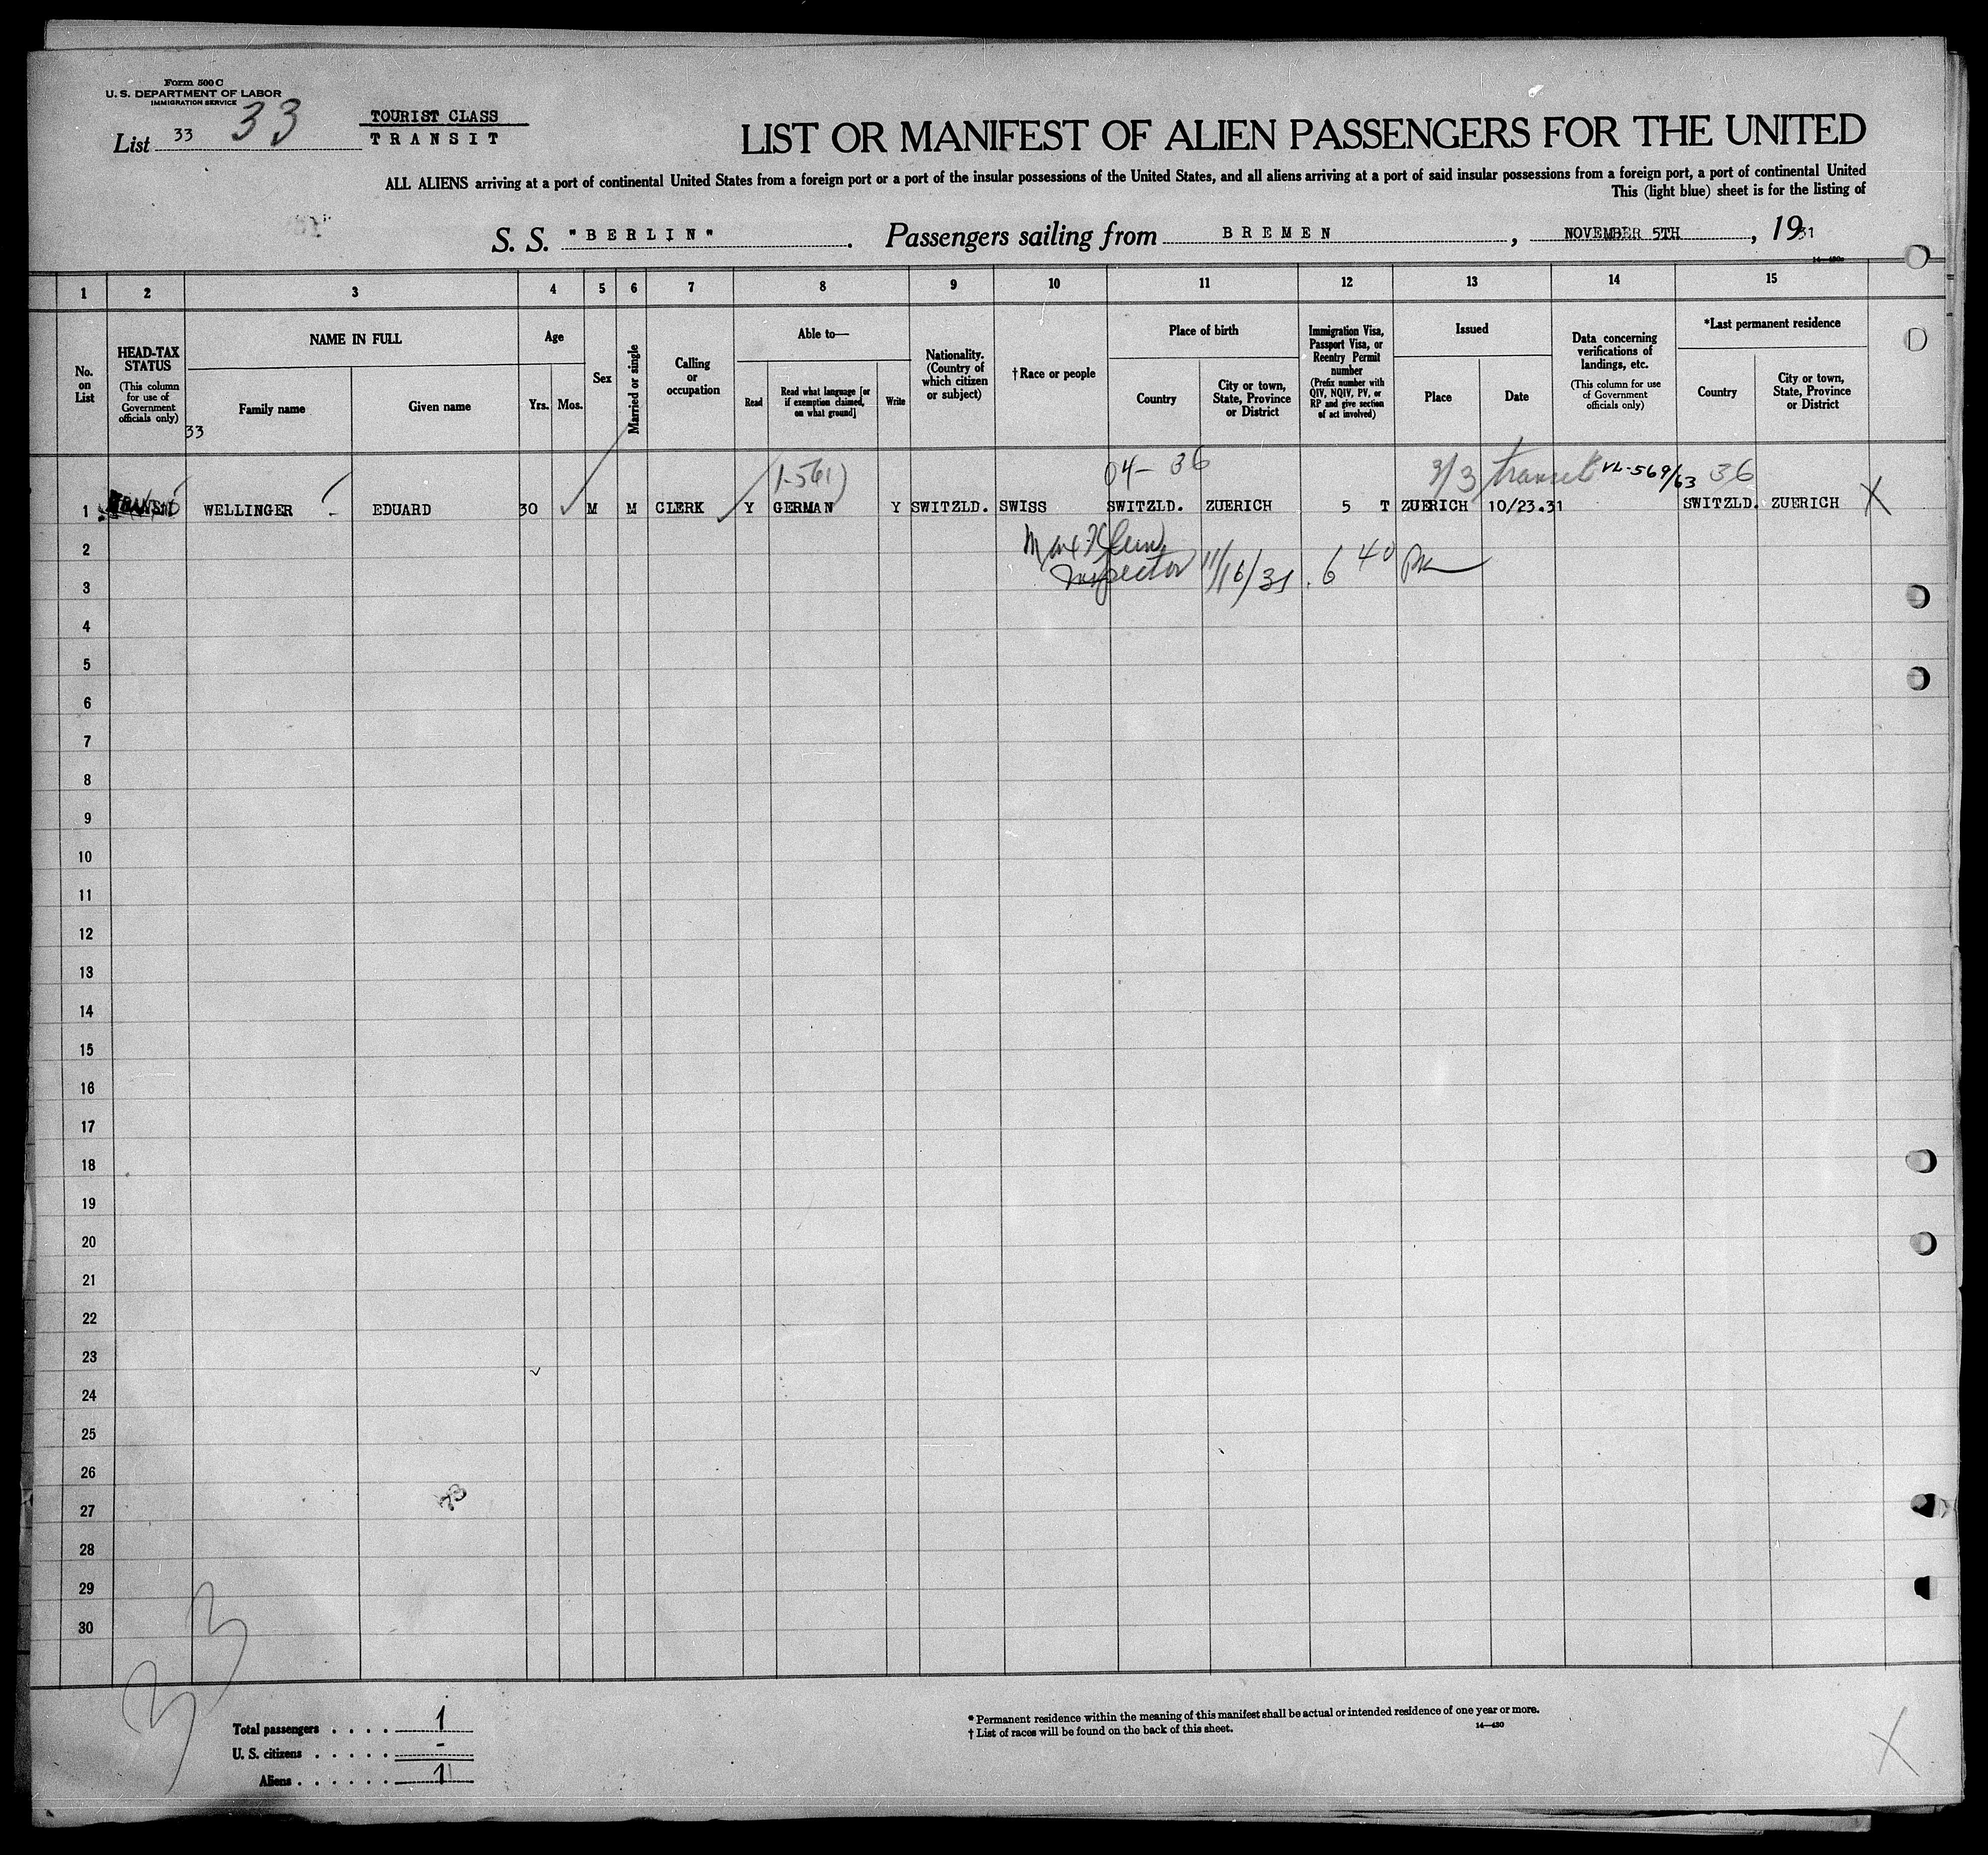 Form 500 C
U. S. DEPARTMENT OF LABOR
IMMIGRATION SERVICE
List 33 33
TOURIST CLASS
TRANSIT
LIST OR MANIFEST OF ALIEN PASSENGERS FOR THE UNITED
ALL ALIENS arriving at a port of continental United States from a foreign port or a port of the insular possessions of the United States, and all aliens arriving at a port of said insular possessions from a foreign port, a port of continental United
This (light blue) sheet is for the listing of
S. S. "BERLIN". Passengers sailing from BREMEN, NOVEMBER 5TH, 1931
1 2 3 4 5 6 7 8 9 10 11 12 13 14 15
No. on List
HEAD-TAX STATUS
(This column for use of Government officials only)
NAME IN FULL
Family name
Given name
Age
Yrs. Mos.
Sex
Married or single
Calling or occupation
Able to—
Read
Read what language [or if exemption claimed, on what ground]
Write
Nationality. (Country of which citizen or subject)
†Race or people
Place of birth
Country
City or town, State, Province or District
Immigration Visa, Passport Visa, or Reentry Permit number
(Prefix number with QIV, NQIV, PV, or RP and give section of act involved)
Issued
Place
Date
Data concerning verifications of landings, etc.
(This column for use of Government officials only)
*Last permanent residence
Country
City or town, State, Province or District
33
1-561)
04- 36
3/3 transit VL-569/63 36
1 TRANSIT WELLINGER EDUARD 30 M M CLERK Y GERMAN Y SWITZLD. SWISS SWITZLD. ZUERICH 5 T ZUERICH 10/23.31 SWITZLD. ZUERICH X
2
Inspector 11/16/31 6 40 PM
3
4
5
6
7
8
9
10
11
12
13
14
15
16
17
18
19
20
21
22
23
24
25
26
27
28
29
30
33
Total passengers . . . . 1
U. S. citizens . . . . . -
Aliens . . . . . . 1
* Permanent residence within the meaning of this manifest shall be actual or intended residence of one year or more.
† List of races will be found on the back of this sheet.
14—430
X